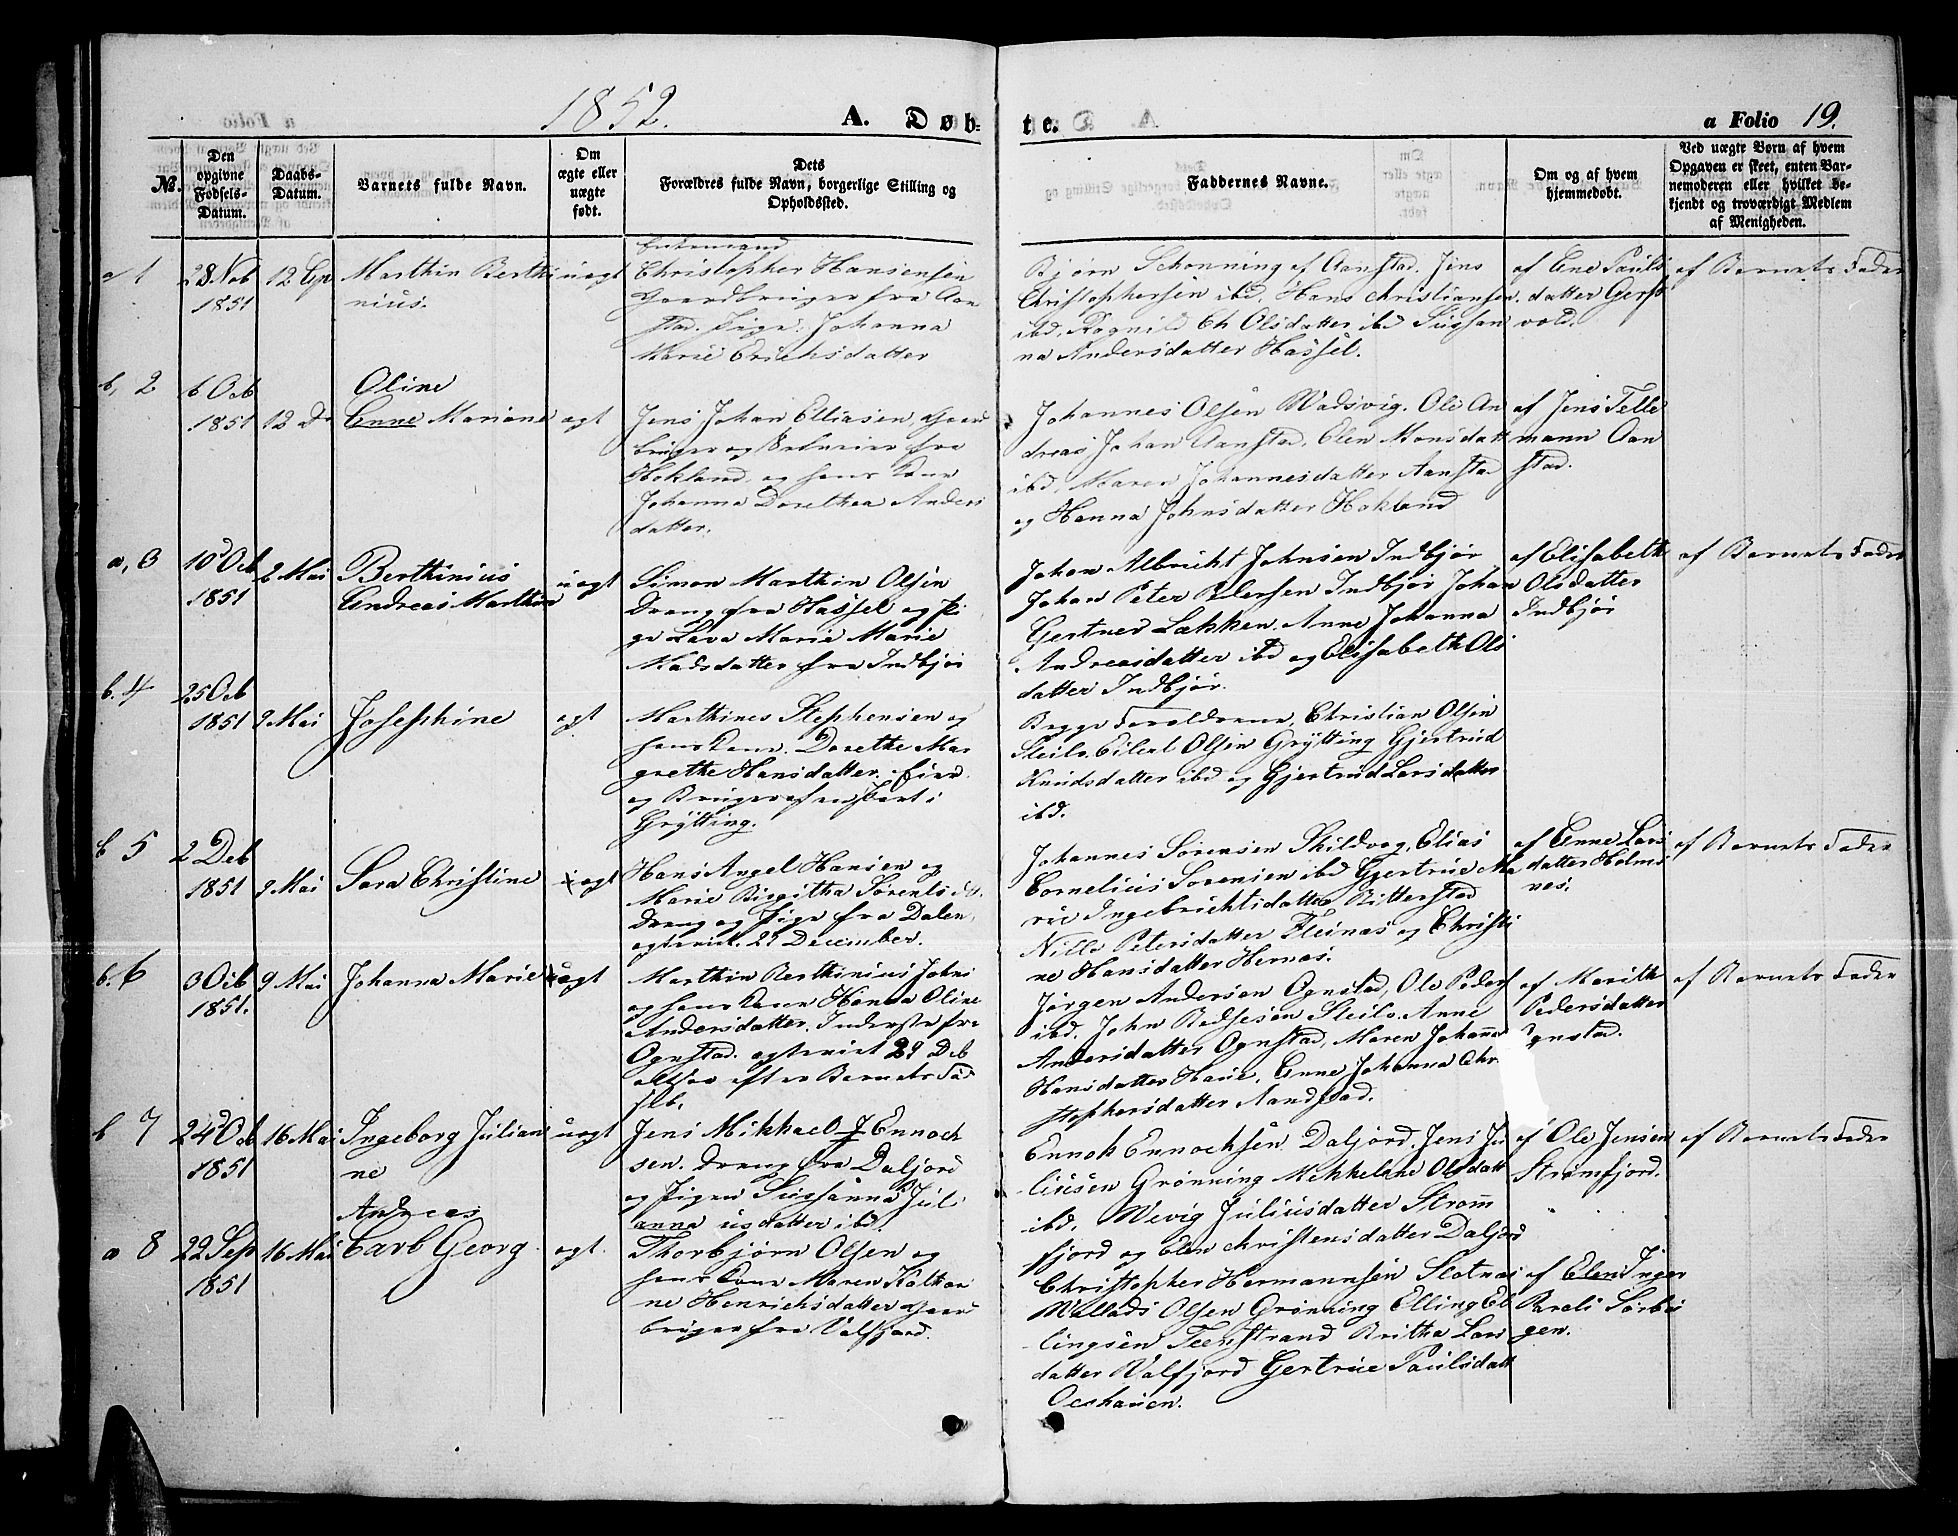 1852.
A. Døb=
te.
a Folio 19.
No.
Den opgivne Fødsels-Datum.
Daabs-Datum.
Barnets fulde Navn.
Om ægte eller uægte født.
Dets Forældres fulde Navn, borgerlige Stilling og Opholdssted.
Faddernes Navne.
Om og af hvem hjemmedøbt.
Ved uægte Børn af hvem Opgaven er skeet, enten Barnemoderen eller hvilket bekjendt og troværdigt Medlem af Menigheden.
a 1
28 Nob
1851
12 Ap
Marthin Berthi
nius.
uægt
Enkemand
Christopher Hansen
Gaardbruger fra Aan
stad. Pige. Johanna
Marie Erichsdatter
Bjørn Schonning af Aanstad. Jens
Christophersen ibd, Hans Christiansen
ibd, Ragnild Ch Olsdatter ibd Susan
na Andersdatter Hassel.
af Ane Pauls
datter Gerst
vold.
af Barnets Fader
b, 2
6 Oct
1851
12 Do
Oline
Anne Mariane
ægt
Jens Johan Elliasen, Gaard
bruger og fra
Hokland og hans Kone
Johanna Dorethea Anders
datter.
Johannes Olsen Wadsvig. Ole An
dreas Johan Aanstad, Elen Monsdatt
ibd, Maren Johannesdatter Aanstad
og Hanna Johnsdatter Hokland
af Jens Telle
mann Aan
stad.
a, 3
10 Oct
1851
2 Mai
Berthinius
Andreas Marthin
uægt
Simon Marthin Olsen
Dreng fra Hassel og Pi
ge Lava Marie Marie
Madsdatter fra Indbjør
Johan Albricht Johnsen Indbjør
Johan Peter Pedersen Indbjør Johan
Gertner Løkken, Anne Johanna
Andreasdatter ibd og Elisabeth Ols
datter Indbjør.
af Elisabeth
Olsdatter
Indbjør
af Barnets Fader
b. 4
25 Oct
1851
9 Mai
Josephine
ægt
Marthines Stephensen og
hans Kone. Dorethe Mar
grethe Hansdatter.
og Bruger af en Part i
Grytting.
Begge Forældrene, Christian Olsen
Steilo, Eilert Olsen Grytting Gjertrud
Knudsdatter ibd og Gjertrud Larsdatter
ibd.
b 5
2 Deb
1851
9 Mai
Sara Christine
uægt
Hans Angel Hansen og
Marie Birgitha Sørensd.
Dreng og Pige fra Dalen,
ægteviet. 29 December.
Johannes Sørensen Skildvog, Elias
Cornelius Sørensen ibd Gjertrue Ma
rie Ingebrichtsdatter Ritterstad
Nille Petersdatter Fleinæs og Christi
ne Hansdatter Hernæs.
af Anne Lars
datter Holms
næs.
af Barnets Fader
b. 6
3 Oct
1851.
9 Mai
Johanna Marie
uægt
Marthin Berthinius Johns
og hans Kone Hanna Oline
Andersdatter. Inderste fra
Ognstad. ægteviet 29 Deb
altsaa efter Barnets Fød
sel.
Jørgen Andersen Ognstad, Ole Peders
ibd. John Steilo. Anne
Andersdatter Ognstad, Maren Johanna
Hansdatter, Anne Johanna Chri
stophersdatter Aandstad.
af Marith
Pedersdatter
Ognstad.
af Barnets Fader
b 7
24 Oct
1851
16 Mai
Ingeborg Julian
ne
uægt
Jens Mikkael J Ennoch
sen. Dreng fra Daljord
og Pigen Susanna Juli
anna usdatter ibd.
Ennok Ennochsen Daljord, Jens Ju
liusen Grønning Mikkeline Olsdatt
ibd. Wevig Juliusdatter Strøm
fjord og Elen Christensdatter Daljord
af Ole Jensen
Strømfjord.
af Barnets Fader
a 8
22 Sep
1851
16 Mai
Andreas
Carl Georg
ægt.
Thorbjørn Olsen og
hans Kone Maren Kathar
ne Henrichsdatter Gaard
bruger fra Valfjord.
Christopher Hermannsen Slotnæs
Mellads Olsen Grønning Elling El
lingsen Teenstrand Britha Lars
datter Valfjord Gertrue Paulsdatt
Oeshauen.
af Elen Inger
Parels Sorbø
gen.